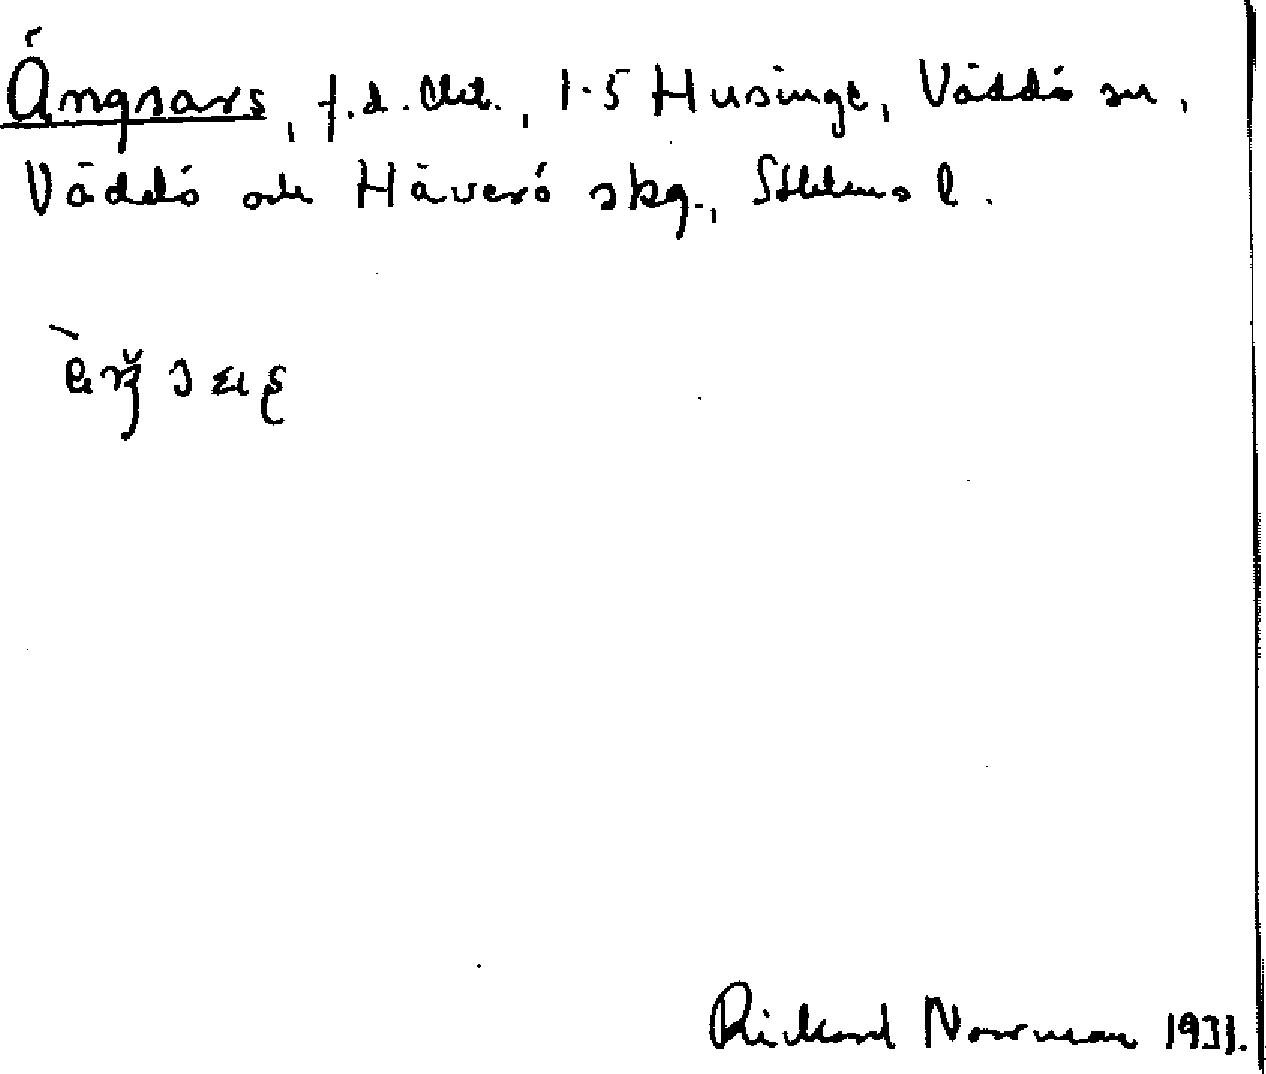 Ängsars, f.d. , 1-5 Husinge, Väddö sn,
Väddö och Häverö skg., Sthlms l.
Rickard Norrman 1931.